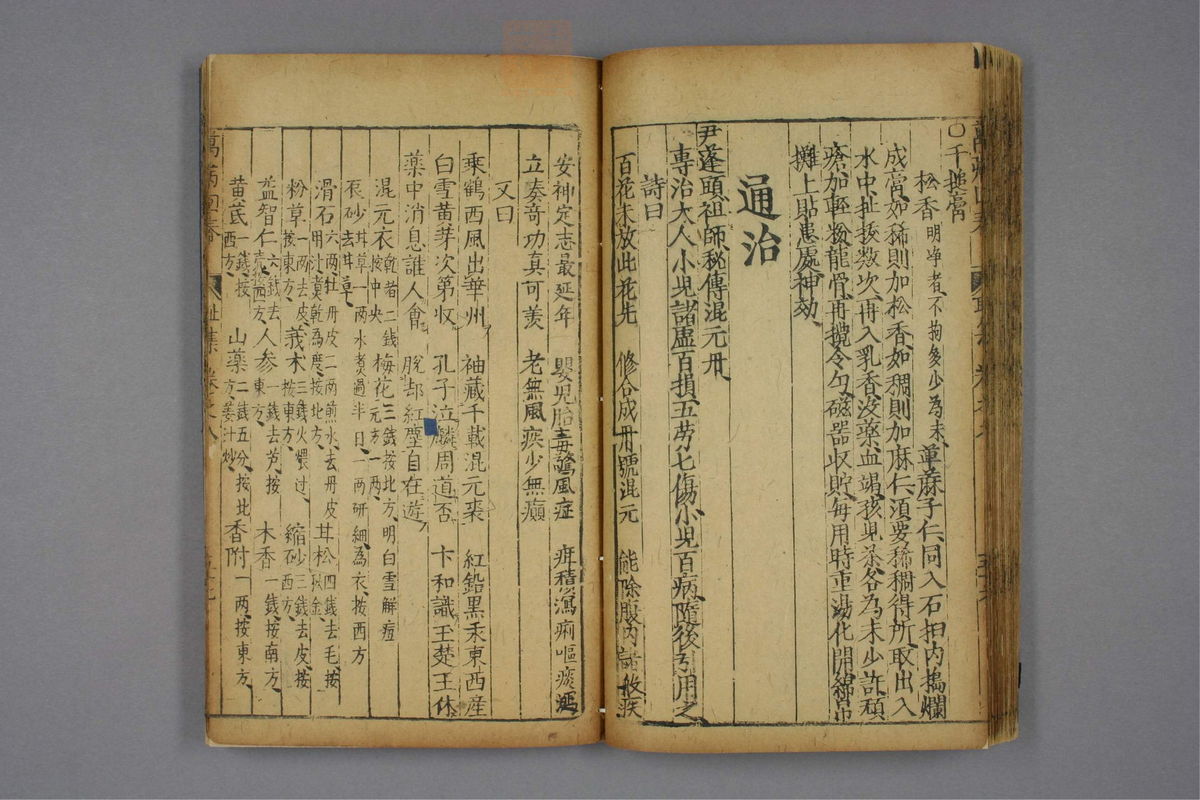 ○千搥膏
松香明淨者、不拘多少、為末、萆麻子仁同入石臼內搗爛
成膏、如稀則加松香、如稠則加麻仁、須要稀稠得所、取出入
水中、扯拔数次、再入乳香、没藥、血竭、孩児茶各為末少許、
瘡、加輕粉、龍骨、再攪令勻、磁器收貯、每用時重湯化開、綿帛
攤上、貼患處、神効、
通治
尹蓬頭祖師秘傳混元丹
專治大人小児諸虛百損、五労七傷、小児百病、隨後引用之、
詩曰
百花未放此花先　修合成丹號混元　能除腹內諸般疾
安神定志最延年　嬰児胎毒驚風症　疳積瀉痢嘔痰涎
立奏奇功真可羡　老無風疾少無癲
又曰
乘鶴西風出華州　袖藏千載混元裘　紅鉛黑汞東西産
白雪黄芽次第收　孔子泣麟周道否　卞和識玉楚王休
藥中消息誰人會　脫却紅塵自在遊
混元衣乾者二錢、按中央　梅花三錢、按北方、明白雪解痘元方一両、
辰砂甘草一両、水煮過半日、去甘草、一両研細為衣、按西方
滑石六両、牡丹皮二両煎水、去丹皮用汁煮乾為度、按北方、甘松四錢、去毛、按金、
粉草一両、去皮、按東方、莪术三錢、火煨過、按東方、縮砂三錢、去皮、按西方、
益智仁六錢、去壳、按西方、人参一錢、去芦、按東方、木香一錢、按南方、
黄芪一錢、按西方、山藥二錢五分、按北方、姜汁炒、香附一両、按東方、
萬病回春
卷之八